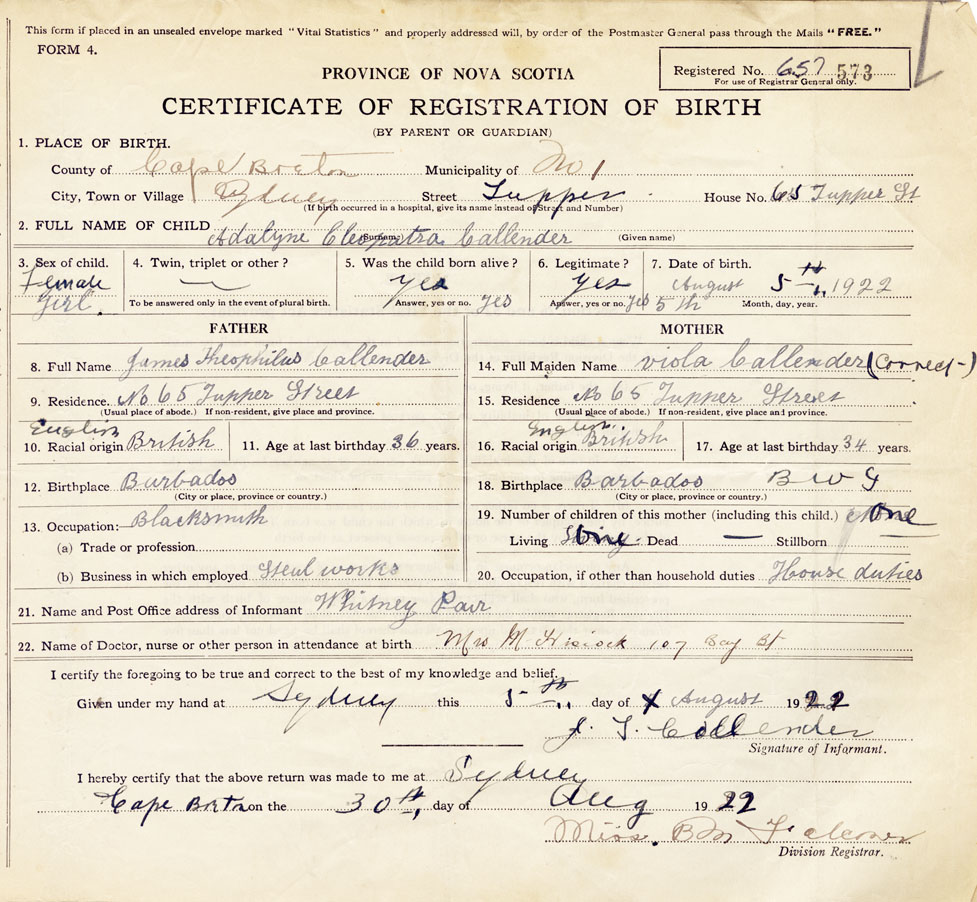 This form if placed in an unsealed envelope marked "Vital Statistics" and properly addressed will, by order of the Postmaster General pass through the Mails "FREE."
FORM 4.
Registered No. 657 573
For use of Registrar General only.
PROVINCE OF NOVA SCOTIA
CERTIFICATE OF REGISTRATION OF BIRTH
(BY PARENT OR GUARDIAN)
1. PLACE OF BIRTH.
County of Cape Breton Municipality of No 1
City, Town or Village Sydney Street Tupper House No. 65 Tupper St
(If birth occurred in a hospital, give its name instead of Street and Number)
2. FULL NAME OF CHILD Adalyne Cleopatra Callender
(Surname) (Given name)
3. Sex of child. 4. Twin, triplet or other? 5. Was the child born alive? 6. Legitimate? 7. Date of birth.
Female — yes yes August 5th 1922
Girl. To be answered only in the event of plural birth. Answer, yes or no. yes Answer, yes or no. yes 5th Month, day, year.
FATHER
8. Full Name James Theophilus Callender
9. Residence. No 65 Tupper Street
(Usual place of abode.) If non-resident, give place and province.
English
10. Racial origin British 11. Age at last birthday 36 years.
12. Birthplace Barbados
(City or place, province or country.)
13. Occupation: Blacksmith
(a) Trade or profession
(b) Business in which employed Steul works
MOTHER
14. Full Maiden Name viola Callender (Correct-)
15. Residence No 65 Tupper Street
(Usual place of abode.) If non-resident, give place and province.
English.
16. Racial origin British 17. Age at last birthday 34 years.
18. Birthplace Barbados B W
(City or place, province or country.)
19. Number of children of this mother (including this child.) One
Living One Dead — Stillborn
20. Occupation, if other than household duties House duties
21. Name and Post Office address of Informant Whitney Pair
22. Name of Doctor, nurse or other person in attendance at birth Mrs M Hiscock 107 Bay St
I certify the foregoing to be true and correct to the best of my knowledge and belief.
Given under my hand at Sydney this 5th day of August 1922
J. T. Callender
Signature of Informant.
I hereby certify that the above return was made to me at Sydney
Cape Breton on the 30th, day of Aug 1922
Miss. B M
Division Registrar.